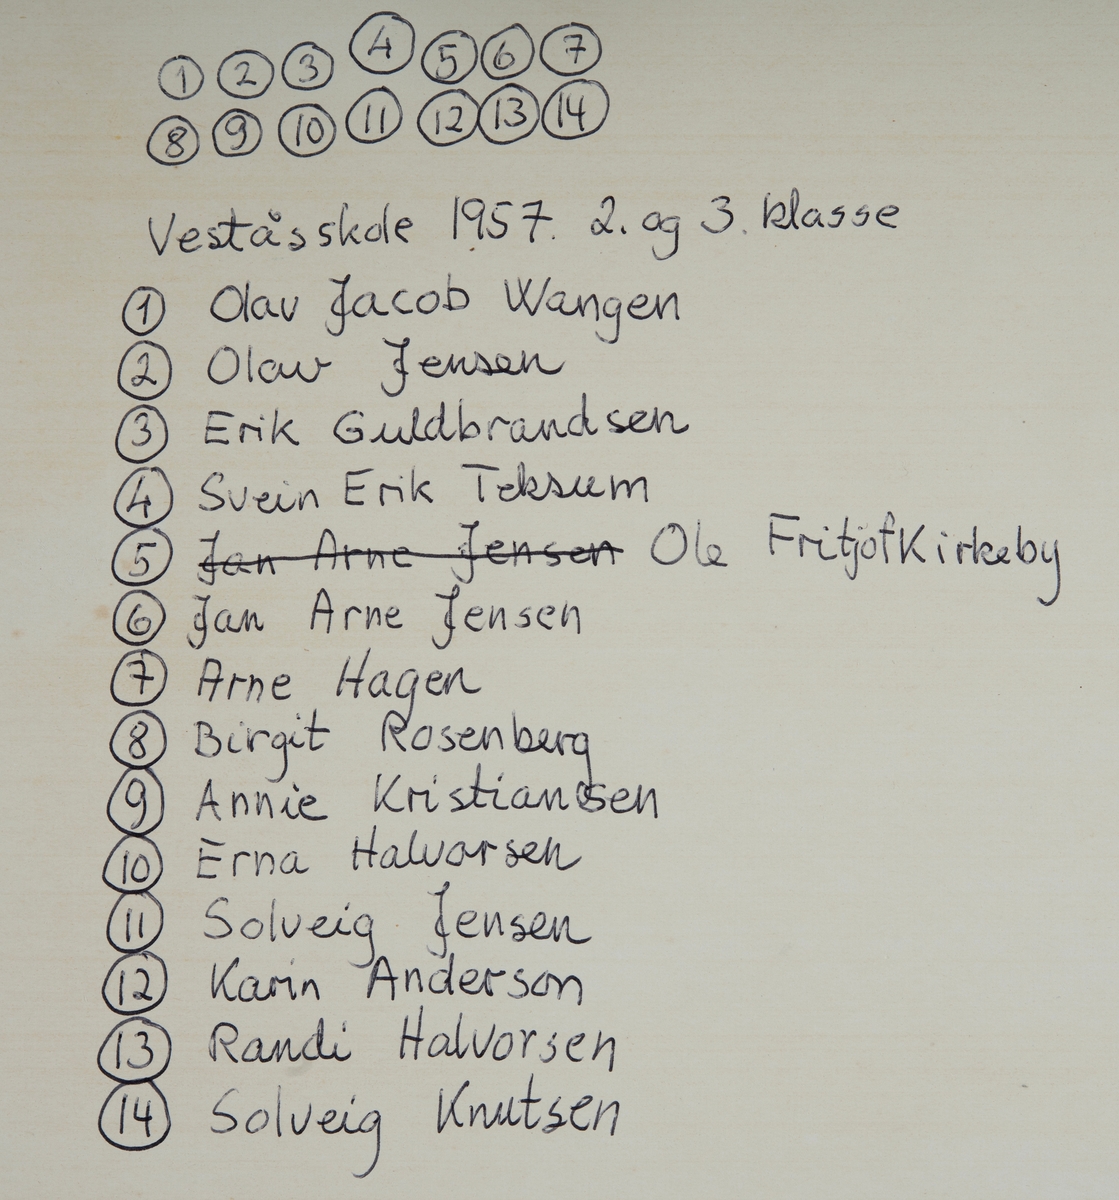 1 2 3 4 5 6 7
8 9 10 11 12 13 14
Veståsskole 1957. 2. og 3. klasse
1 Olav Jacob Wangen
2 Olav Jensen
3 Erik Guldbrandsen
4 Svein Erik Teksum
5 Jan Arne Jensen Ole Fritjof Kirkeby
6 Jan Arne Jensen
7 Arne Hagen
8 Birgit Rosenberg
9 Annie Kristiansen
10 Erna Halvorsen
11 Solveig Jensen
12 Karin Anderson
13 Randi Halvorsen
14 Solveig Knutsen